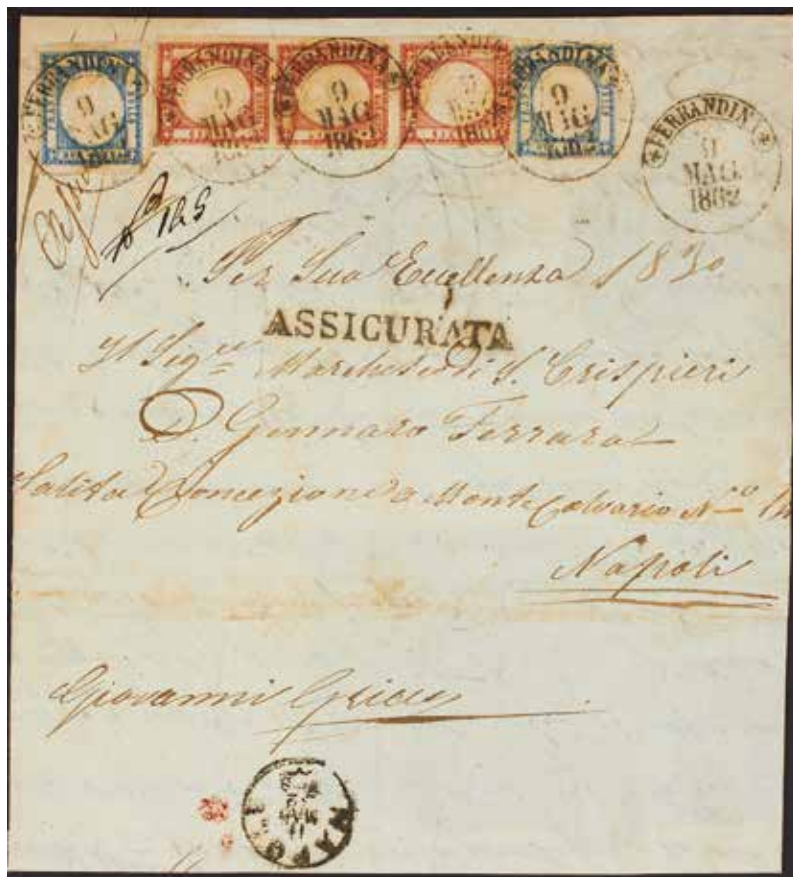 FERRANDINA
9
MAG
FERRANDINA
9
MAG
186
FERRANDINA
9
MAG
1862
FERRANDINA
9
MAG
186
FERRANDINA
9
MAG
186
FERRANDINA
9
MAG
1862
Per Sua Eccellenza 1830
ASSICURATA
Il Sig.re Marchese di S. Crispieri
D. Gennaro Ferrara
Salita Concezione a Monte Calvario N.o
Napoli
Giovanni
NAPOLI
11
MAG